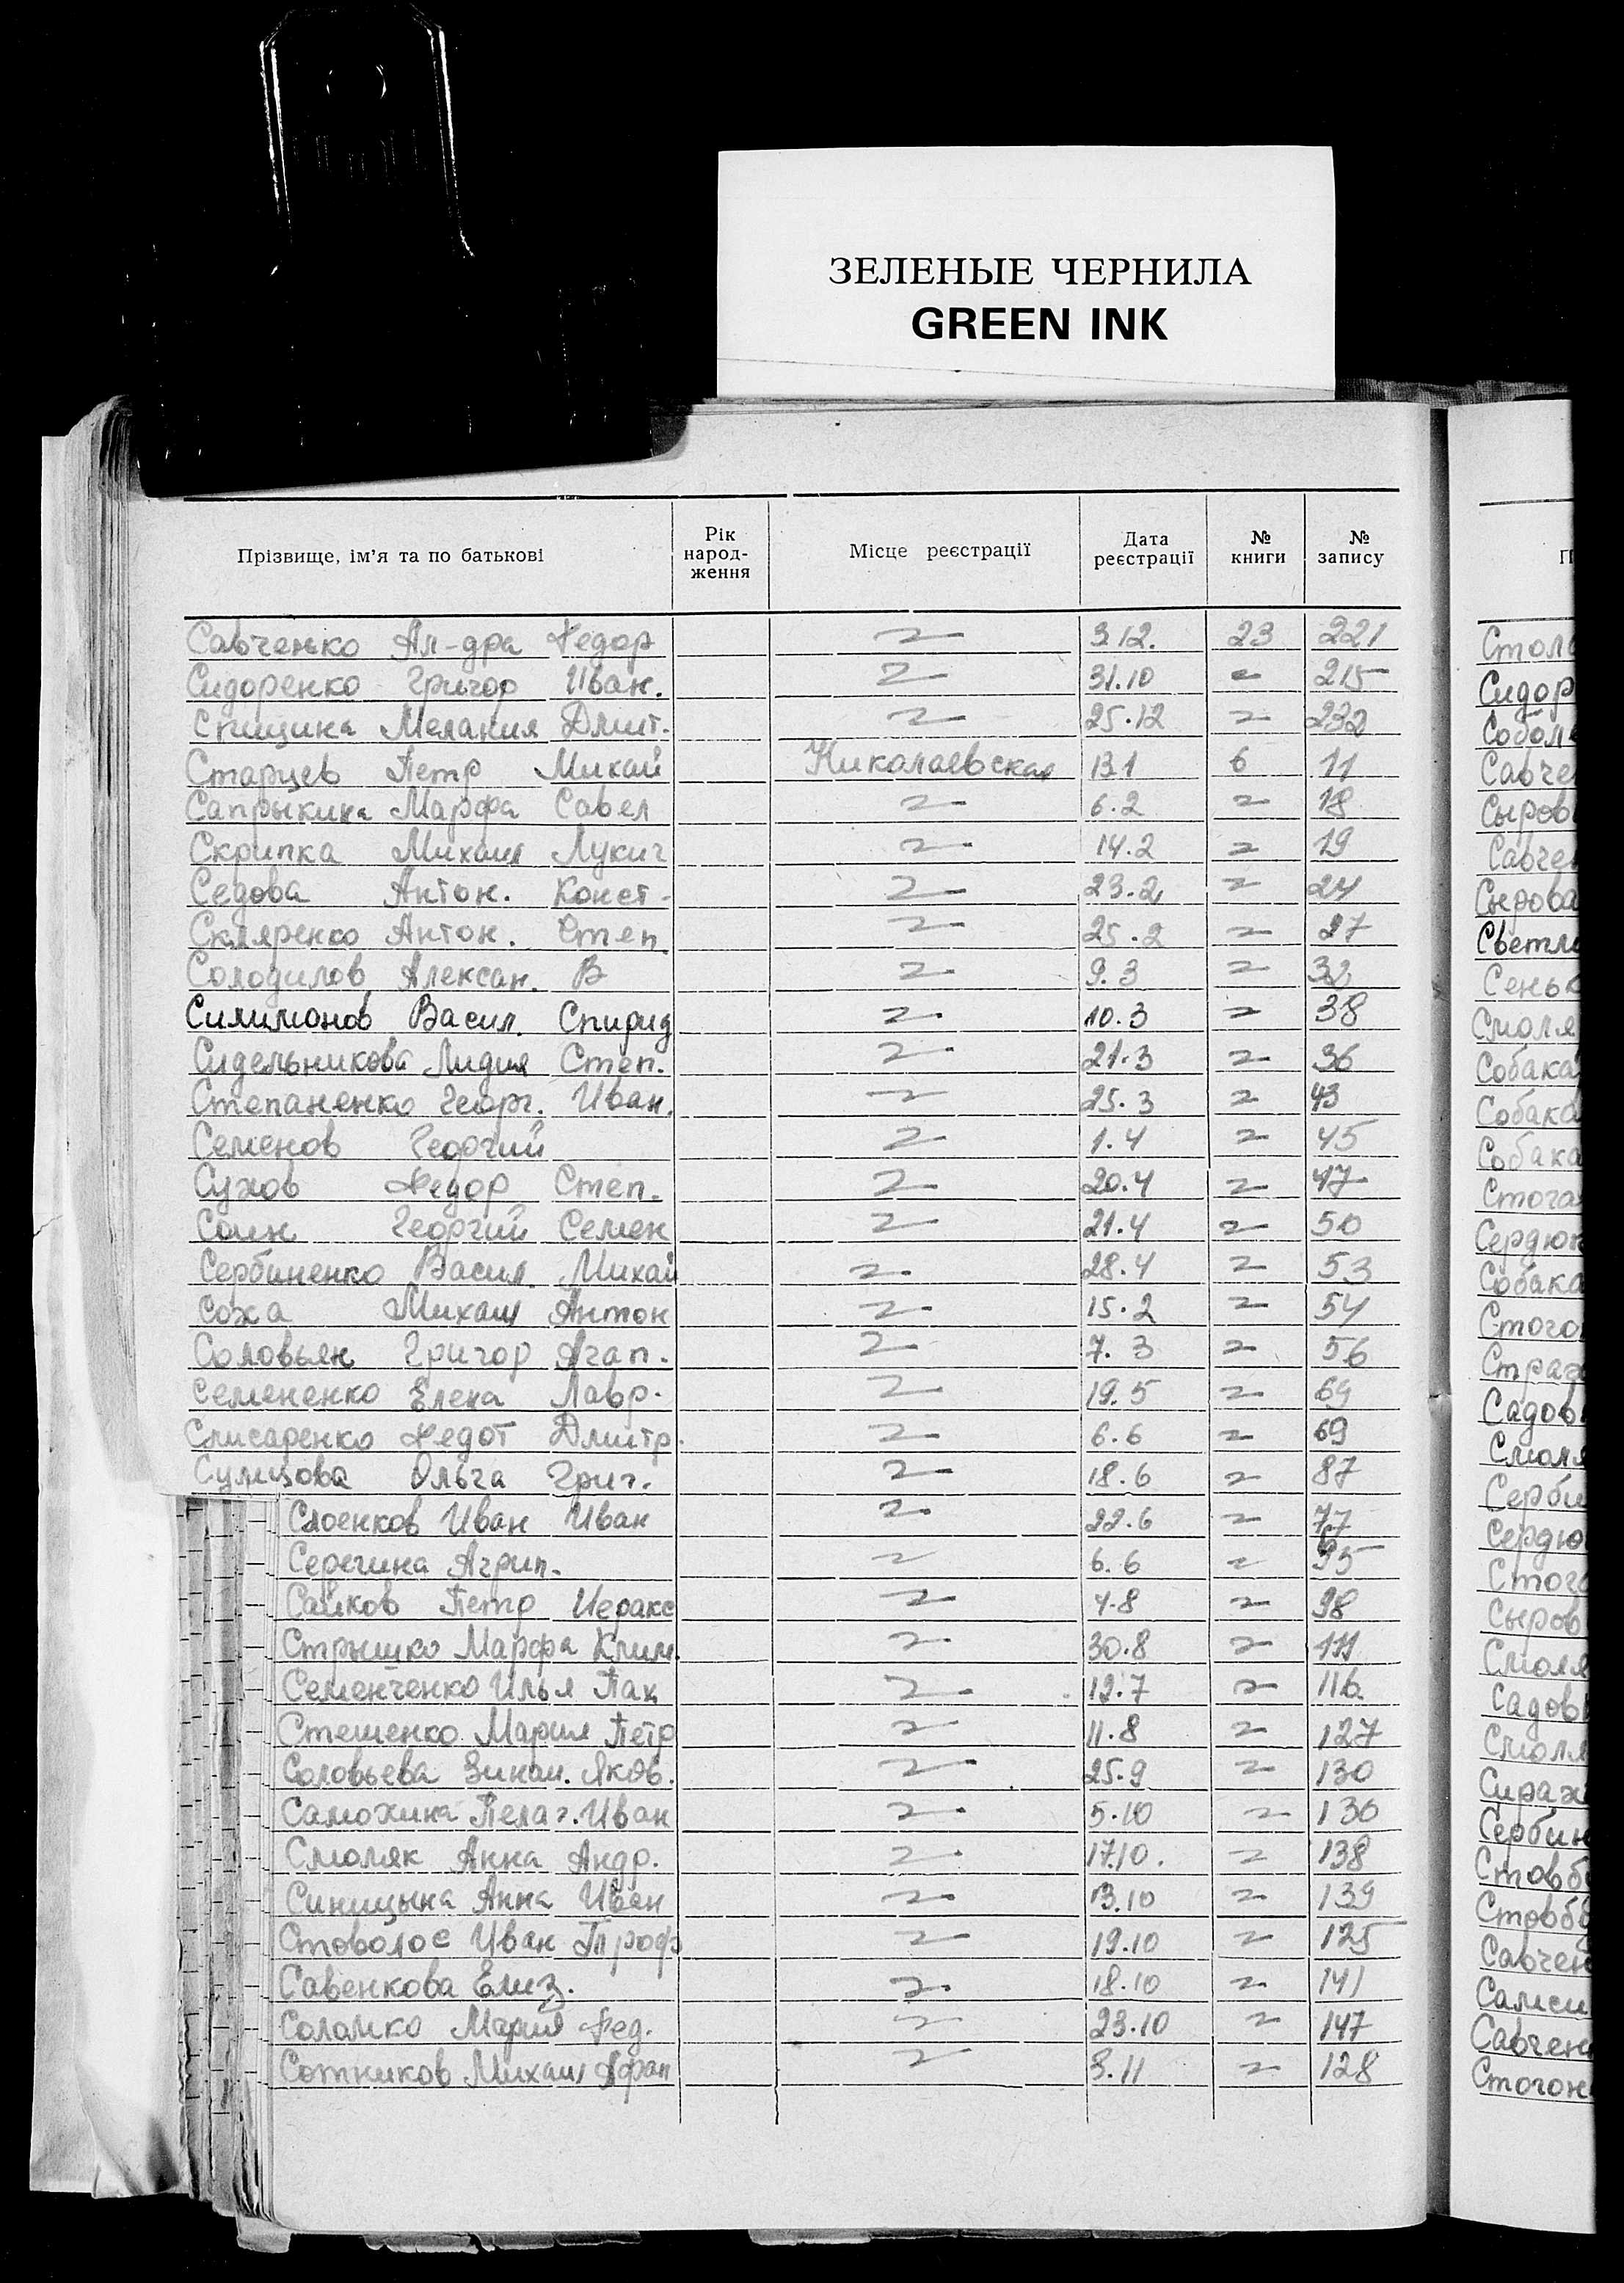 ЗЕЛЕНЫЕ ЧЕРНИЛА
GREEN INK
Прізвище, ім'я та по батькові Рік народ- ження Місце реєстрації Дата реєстрації № книги № запису
Савченко Ал-дра Федор 〃 3.12. 23 221
Сидоренко Григор Иван. 〃 31.10 〃 215
Спицина Мелания Дмит. 〃 25.12 〃 232
Старцев Петр Михай Николаевская 13.1 6 11
Сапрыкина Марфа Савел 〃 6.2 〃 18
Скрипка Михаил Лукич 〃 14.2 〃 19
Седова Антон. Конст- 〃 23.2 〃 24
Скляренко Антон. Степ 〃 25.2 〃 27
Солодилов Алексан. В 〃 9.3 〃 32
Силимонов Васил. Спирид 〃 10.3 〃 38
Сидельникова Лидия Степ. 〃 21.3 〃 36
Степаненко Георг. Иван. 〃 25.3 〃 43
Семенов Гедогий 〃 1.4 〃 45
Сухов Федор Степ. 〃 20.4 〃 47
Соин Георгий Семен 〃 21.4 〃 50
Сербиненко Васил. Михай 〃 28.4 〃 53
Соха Михаил Антон 〃 15.2 〃 54
Соловьян Григор Агап. 〃 7.3 〃 56
Семененко Елена Лавр. 〃 19.5 〃 69
Слисаренко Федот Дмитр. 〃 6.6 〃 69
Сумцова Ольга Григ. 〃 18.6 〃 87
Слоенков Иван Иван 〃 22.6 〃 77
Серегина Агрип. 〃 6.6 〃 95
Сайков Петр Иеракс 〃 4.8 〃 98
Стрышко Марфа Клим. 〃 30.8 〃 111
Семенченко Илья Пан 〃 12.7 〃 116
Стешенко Мария Петр 〃 11.8 〃 127
Соловьева Зинаи. Яков. 〃 25.9 〃 130
Самохина Пелаг. Иван 〃 5.10 〃 136
Смоляк Анна Андр. 〃 17.10. 〃 138
Синицына Анна Иван 〃 13.10 〃 139
Стоволос Иван Троф 〃 19.10 〃 125
Савенкова Елиз. 〃 18.10 〃 141
Соломко Мария Фед. 〃 23.10 〃 147
Сотников Михаил Афан 〃 3.11 〃 128
П
Стол
Сидор
Собол
Савче
Сыров
Савче
Сырова
Светл
Сеньк
Смоля
Собака
Собака
Собака
Стога
Сердю
Собака
Стого
Страх
Садов
Смоля
Серби
Сердю
Стого
Сыров
Смоля
Садов
Смоля
Сираж
Сербин
Стовб
Стовб
Савчен
Самси
Савчен
Стогон